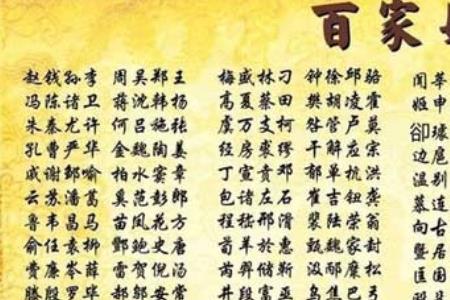 百家
赵钱孙李 周吴郑王 梅盛林刁 钟徐邱骆 闻莘
冯陈诸卫 蒋沈韩杨 高夏蔡田 樊胡凌霍 姬申
朱秦尤许 何吕施张 虞万支柯 昝管卢莫 卻璩
孔曹严华 金魏陶姜 经房裘缪 干解应宗 边扈
戚谢邹喻 柏水窦章 丁宣贲邓 郁单杭洪 温别
云苏潘葛 奚范彭郎 包诸左石 崔吉钮龚 慕连
鲁韦昌马 苗凤花方 程嵇邢滑 裴陆荣翁 向古
俞任袁柳 酆鲍史唐 荀羊於惠 甄魏家封 暨居
费廉岑薛 雷贺倪汤 芮羿储靳 汲邴糜松 匡国
滕殷罗毕 安常 井段富巫